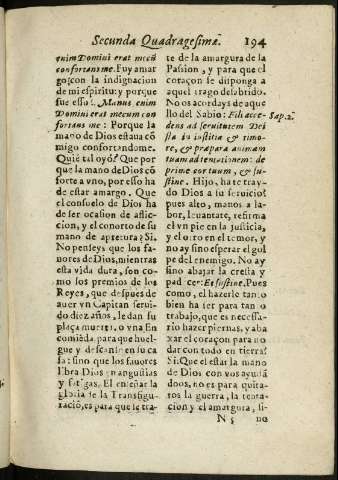 Secunda Quadragesimæ. 194
enim Domini erat mecũ
confortans me. Fuy amar
go; con la indignacion
de mi espiritu: y porque
fue esso? Manus enim
Domini erat mecum con
fortans me: Porque la
mano de Dios estaua cõ
migo confortandome.
Quiẽ tal oyó? Que por
que la mano de Dios cõ
forte a vno, por esso ha
de estar amargo. Que
el consuelo de Dios ha
de ser ocasion de aflic-
cion, y el conorte de su
mano de apretura? Si.
No penseys que los fa-
uores de Dios, mientras
esta vida dura, son co-
mo los premios de los
Reyes, que despues de
auer vn Capitan serui-
do diez años, le dan su
plaça muerta, o vna En
comiẽda, para que huel-
gue y descanse en su ca
sa: sino que los fauores
libra Dios en angustias
y fatigas. El enseñar la
gloria de la Transfigu-
raciõ, es para que le tra-
te de la amargura de la
Passion, y para que el
coraçon se disponga a
aquel trago desabrido.
No os acordays de aque
llo del Sabio: Fili acce-
dens ad seruitutem Dei
sta in iustitia & timo-
re, & præpara animam
tuam ad tentationem: de
prime cor tuum, & su-
stine. Hijo, ha te tray-
do Dios a su seruicio?
pues alto, manos a la-
bor, leuantate, refirma
el vn pie en la justicia,
y el otro en el temor, y
no ay sino esperar el gol
pe del enemigo. No ay
sino abajar la cresta y
padecer: Et sustine. Pues
como, el hazerle tanto
bien ha ser para tan to
trabajo, que es necessa-
rio hazer piernas, y aba
xar el coraçon para no
dar con todo en tierra?
Si. Que el estar la mano
de Dios con vos ayudã
doos, no es para quita-
ros la guerra, la tenta-
cion y el amargura, si-
Sap. 2.
N 5 no